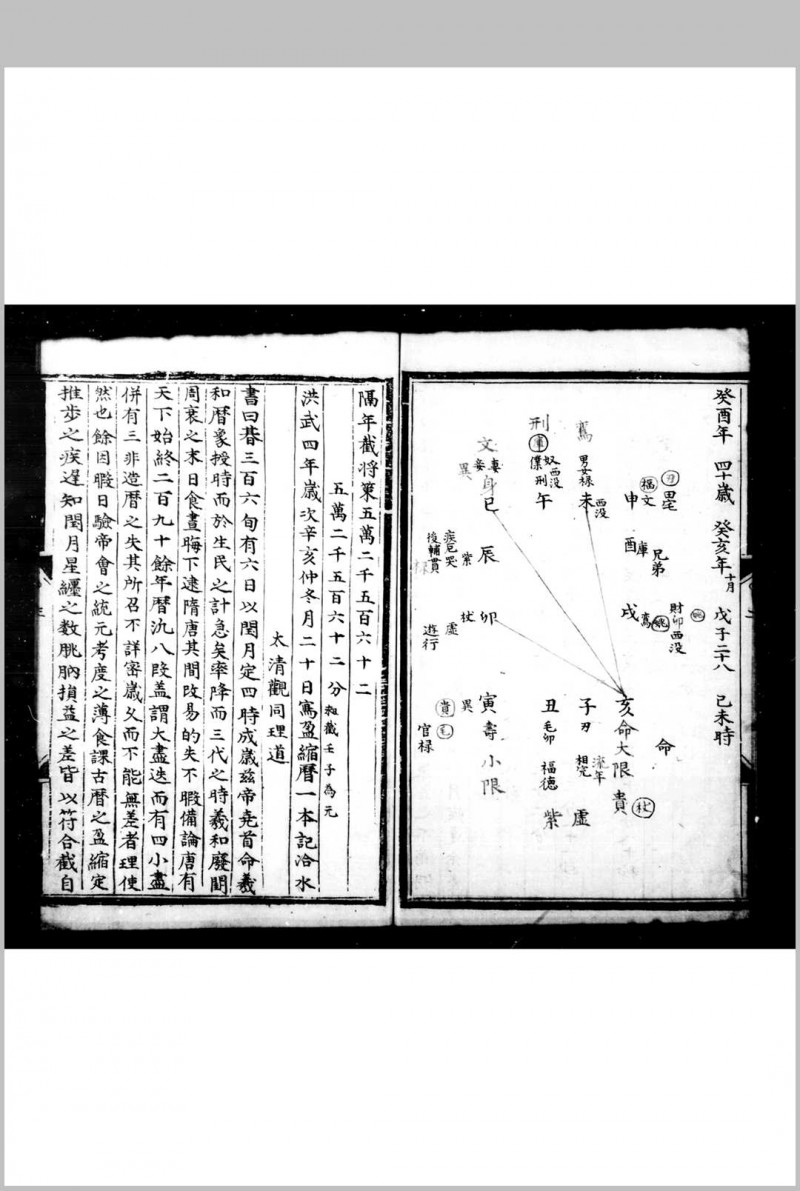 癸酉年 四十歲 癸亥年 十月 戊子二十八 己未時
毘
福 文
申
酉 庫
兄弟
戌 鸞
財卯西没
命
亥命大限貴
流年
子刃 相 虛
丑毛卯 福德 紫
寅壽小限
異
貴
官祿
卯
虛
遊行
辰
紫
疾厄哭
後輔貫
文 妻妾 身巳
異
刑 庫 奴僕 西没 刑 午
鸞 男女祿 未 西没
隔年截將策五萬二千五百六十二
五萬二千五百六十二分 和截壬子為元
洪武四年歲次辛亥仲冬月二十日寫盈縮曆一本記洽水
太清觀同理道
書曰朞三百六旬有六日以閏月定四時成歲茲帝堯首命羲
和曆象授時而於生民之計急矣率降而三代之時羲和廢閒
周衰之末日食晝晦下逮隋唐其間改易的失不暇備論唐有
天下始終二百九十餘年曆氿八段盖謂大盡迭而有四小盡
併有三非造曆之失其所召不詳密歲久而不能無差者理使
然也餘因暇日驗帝會之統元考度之薄食課古曆之盈縮定
推步之疾遲知閏月星纒之数朓朒損益之差皆以符合截自